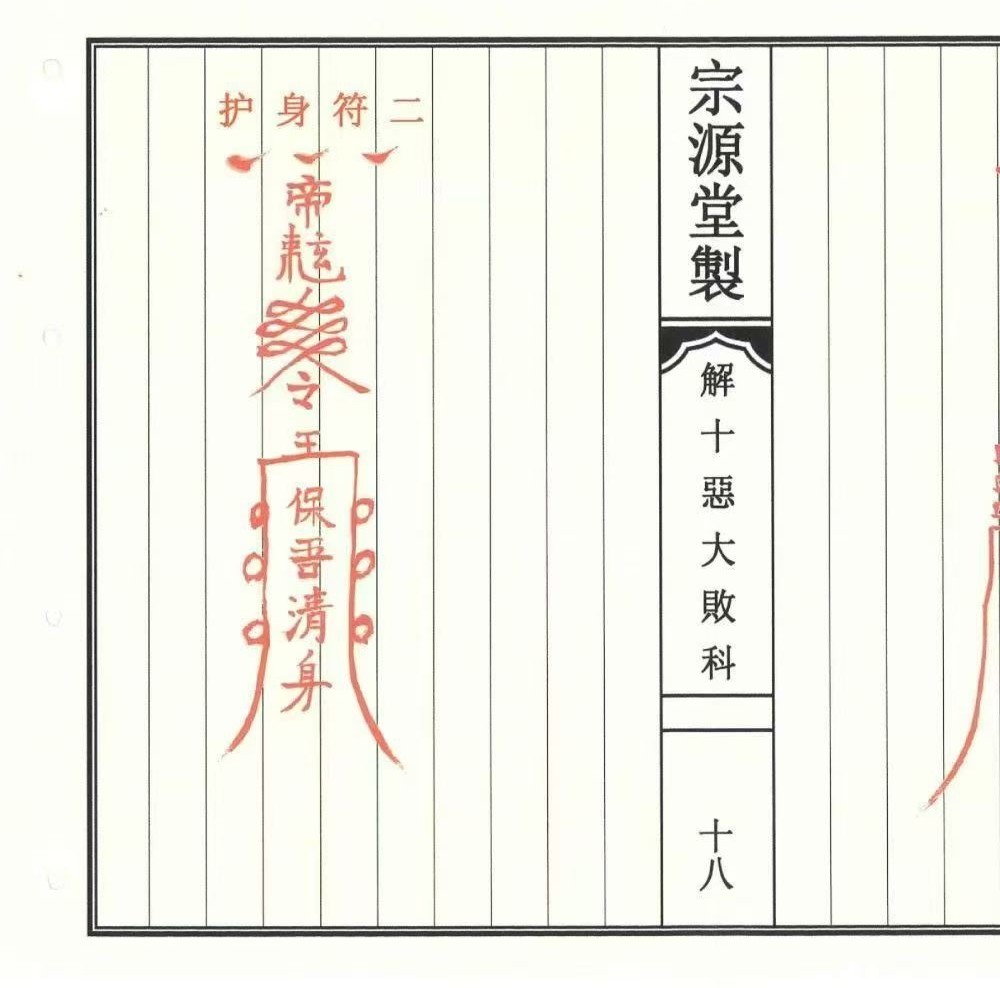 宗源堂製
解十惡大敗科
十八
护身符二
帝
令
王
保吾清身